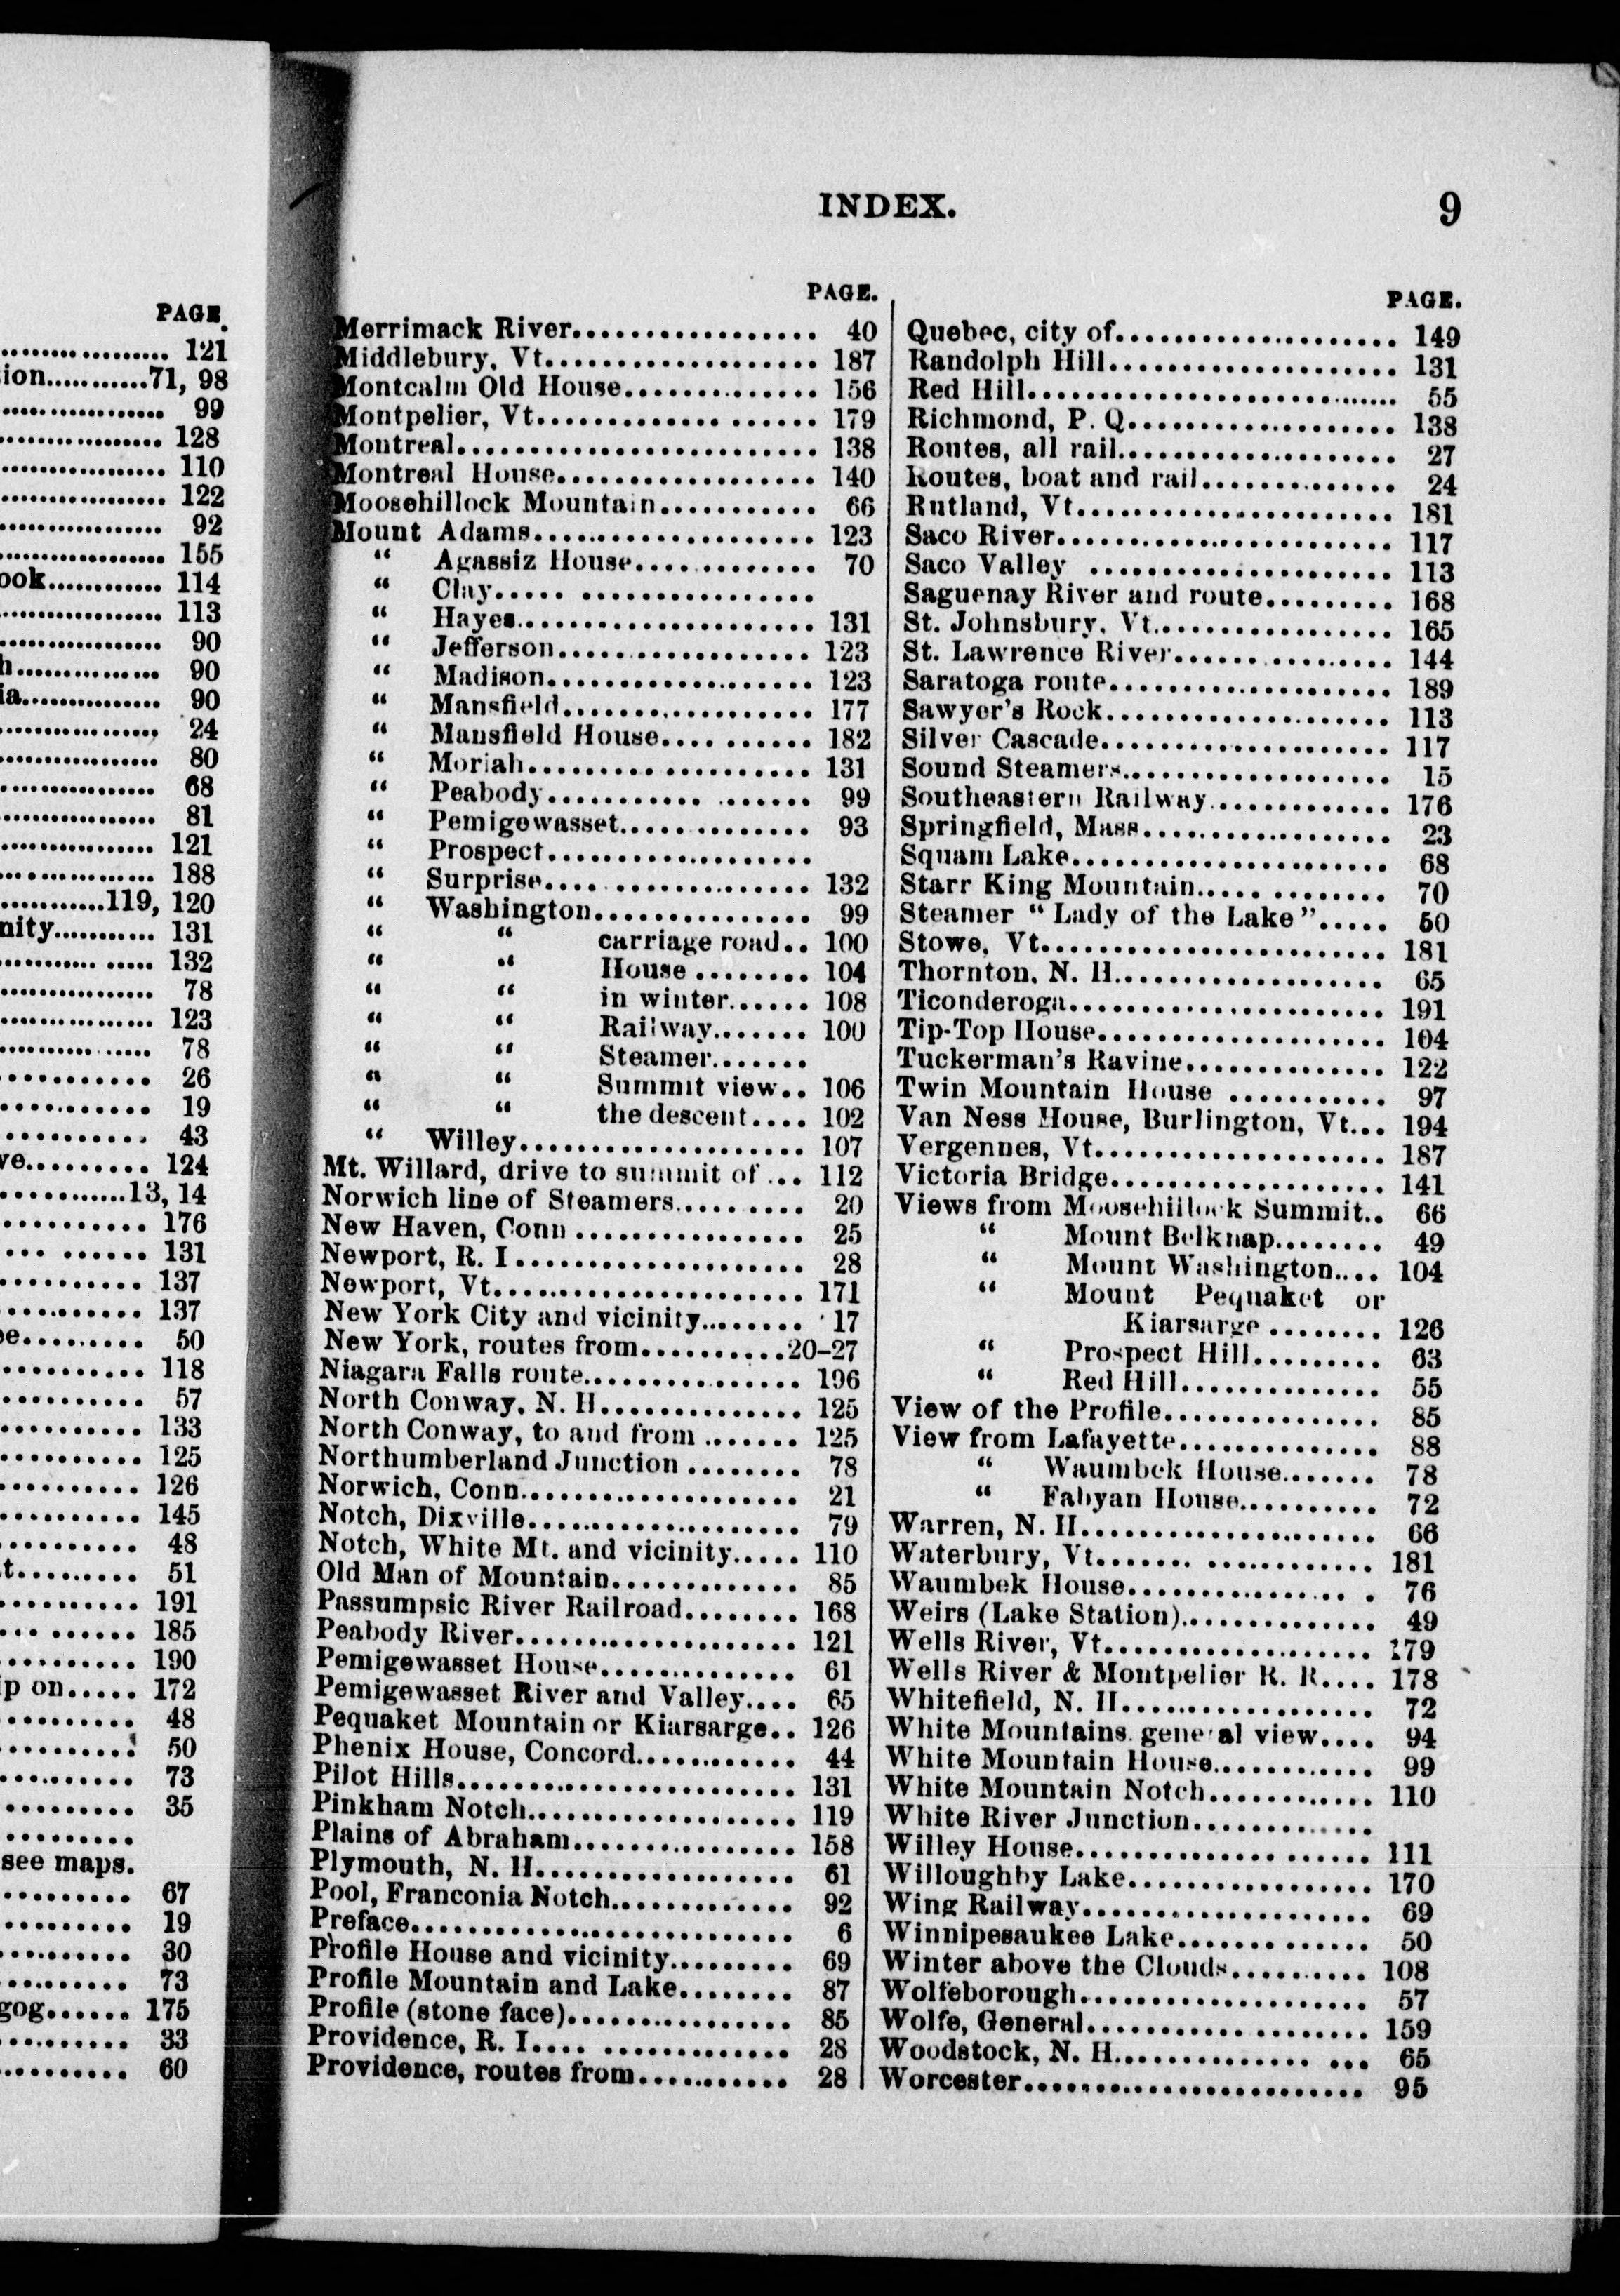 PAGE.
121
ion...........71, 98
99
128
110
122
92
155
ook............ 114
113
90
h............... 90
ia............... 90
24
80
68
81
121
188
............119, 120
nity............ 131
132
78
123
78
26
19
43
ve......... 124
............13, 14
176
131
137
137
50
118
57
133
125
126
145
48
t......... 51
191
185
190
p on..... 172
48
50
73
35
see maps.
67
19
30
73
gog...... 175
33
60
INDEX. 9
PAGE.
Merrimack River.................. 40
Middlebury, Vt.................... 187
Montcalm Old House.............. 156
Montpelier, Vt............. ...... 179
Montreal.......................... 138
Montreal House................... 140
Moosehillock Mountain........... 66
Mount Adams..................... 123
“ Agassiz House............. 70
“ Clay..... .................
“ Hayes...................... 131
“ Jefferson.................. 123
“ Madison.................... 123
“ Mansfield.................. 177
“ Mansfield House.... ...... 182
“ Moriah......... ........... 131
“ Peabody........... ....... 99
“ Pemigewasset.............. 93
“ Prospect...................
“ Surprise.... .............. 132
“ Washington............... 99
“ “ carriage road.. 100
“ “ House ........ 104
“ “ in winter...... 108
“ “ Railway....... 100
“ “ Steamer.......
“ “ Summit view.. 106
“ “ the descent.... 102
“ Willey..................... 107
Mt. Willard, drive to summit of ... 112
Norwich line of Steamers.......... 20
New Haven, Conn ................. 25
Newport, R. I ..................... 28
Newport, Vt....................... 171
New York City and vicinity........ 17
New York, routes from...........20-27
Niagara Falls route................ 196
North Conway, N. H............... 125
North Conway, to and from ....... 125
Northumberland Junction ........ 78
Norwich, Conn.................... 21
Notch, Dixville.................... 79
Notch, White Mt. and vicinity..... 110
Old Man of Mountain.............. 85
Passumpsic River Railroad........ 168
Peabody River..................... 121
Pemigewasset House............... 61
Pemigewasset River and Valley.... 65
Pequaket Mountain or Kiarsarge.. 126
Phenix House, Concord............ 44
Pilot Hills......................... 131
Pinkham Notch.................... 119
Plains of Abraham................. 158
Plymouth, N. H................... 61
Pool, Franconia Notch............. 92
Preface............................ 6
Profile House and vicinity......... 69
Profile Mountain and Lake........ 87
Profile (stone face)................. 85
Providence, R. I.... .............. 28
Providence, routes from........... 28
PAGE.
Quebec, city of..................... 149
Randolph Hill..................... 131
Red Hill........................... 55
Richmond, P. Q................... 138
Routes, all rail..................... 27
Routes, boat and rail.............. 24
Rutland, Vt....................... 181
Saco River......................... 117
Saco Valley ...................... 113
Saguenay River and route......... 168
St. Johnsbury, Vt................. 165
St. Lawrence River................ 144
Saratoga route..................... 189
Sawyer's Rock..................... 113
Silver Cascade..................... 117
Sound Steamers................... 15
Southeastern Railway............. 176
Springfield, Mass.................. 23
Squam Lake....................... 68
Starr King Mountain..... ........ 70
Steamer “ Lady of the Lake ”..... 50
Stowe, Vt......................... 181
Thornton, N. H................... 65
Ticonderoga....................... 191
Tip-Top House.................... 104
Tuckerman's Ravine.............. 122
Twin Mountain House ........... 97
Van Ness House, Burlington, Vt... 194
Vergennes, Vt..................... 187
Victoria Bridge.................... 141
Views from Moosehillock Summit.. 66
“ Mount Belknap........ 49
“ Mount Washington.... 104
“ Mount Pequaket or
Kiarsarge ........ 126
“ Prospect Hill......... 63
“ Red Hill.............. 55
View of the Profile................ 85
View from Lafayette............... 88
“ Waumbek House....... 78
“ Fabyan House.......... 72
Warren, N. H..................... 66
Waterbury, Vt....... ............ 181
Waumbek House................ . 76
Weirs (Lake Station).............. 49
Wells River, Vt................... 179
Wells River & Montpelier R. R.... 178
Whitefield, N. H.................. 72
White Mountains, general view.... 94
White Mountain House............ 99
White Mountain Notch............ 110
White River Junction.............
Willey House............... ...... 111
Willoughby Lake.................. 170
Wing Railway..................... 69
Winnipesaukee Lake....... ...... 50
Winter above the Clouds.......... 108
Wolfeborough..................... 57
Wolfe, General..................... 159
Woodstock, N. H.............. ... 65
Worcester......................... 95